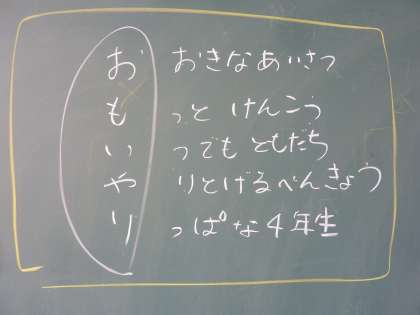 お おきなあいさつ
も っと けんこう
い つでも ともだち
や りとげるべんきょう
り っぱな4年生